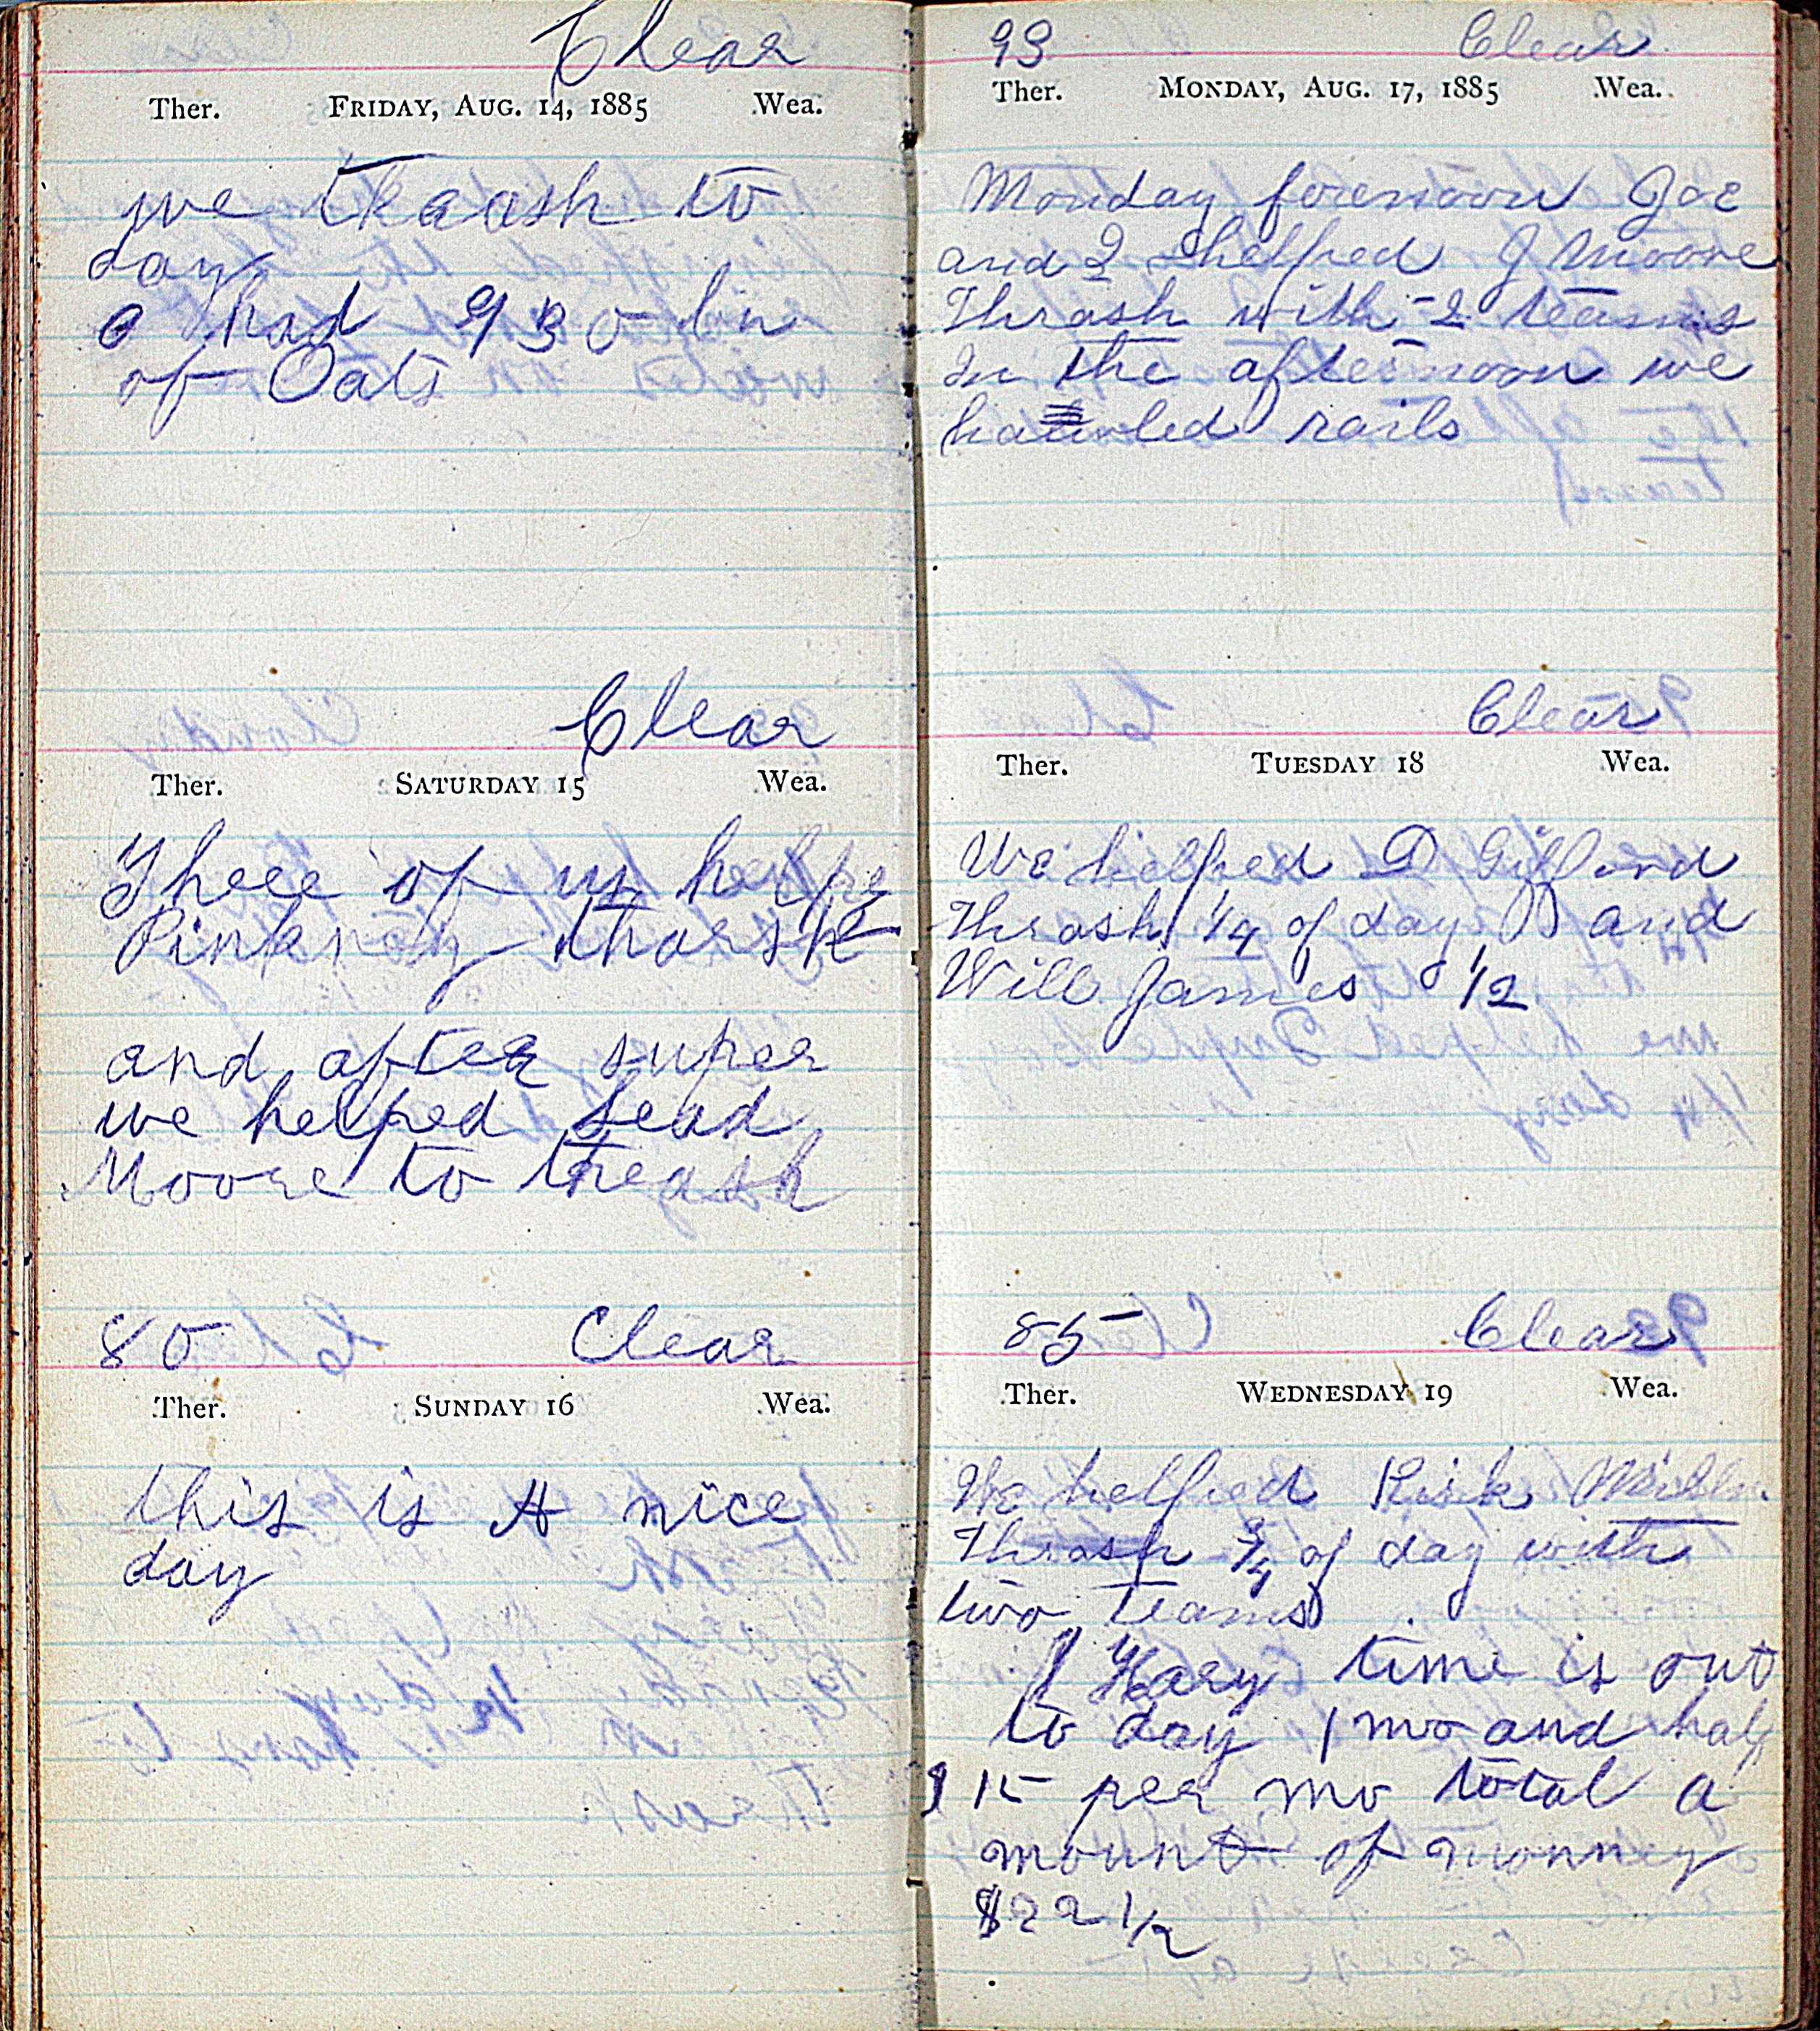 Clear
Ther. Friday, Aug. 14, 1885 Wea.
we thrash to
day
had 930 bu
of Oats
Clear
Ther. Saturday 15 Wea.
Three of us helpe
Pinkney tharsh
and after super
we helped Fead
Moore to thrash
80 Clear
Ther. Sunday 16 Wea.
this is A nice
day
93 Clear
Ther. Monday, Aug. 17, 1885 Wea.
Monday forenoon Joe
and I helped J Moore
Thrash with 2 teams
In the afternoon we
hauled rails
Clear
Ther. Tuesday 18 Wea.
We helped D Gifford
Thrash 1/4 of day and
Will James 1/2
85 Clear
Ther. Wednesday 19 Wea.
We helped Kirk
Thrash 3/4 of day with
two teams
Hary time is out
to day 1 mo and half
15 per mo total a
mount of monney
$22 1/2